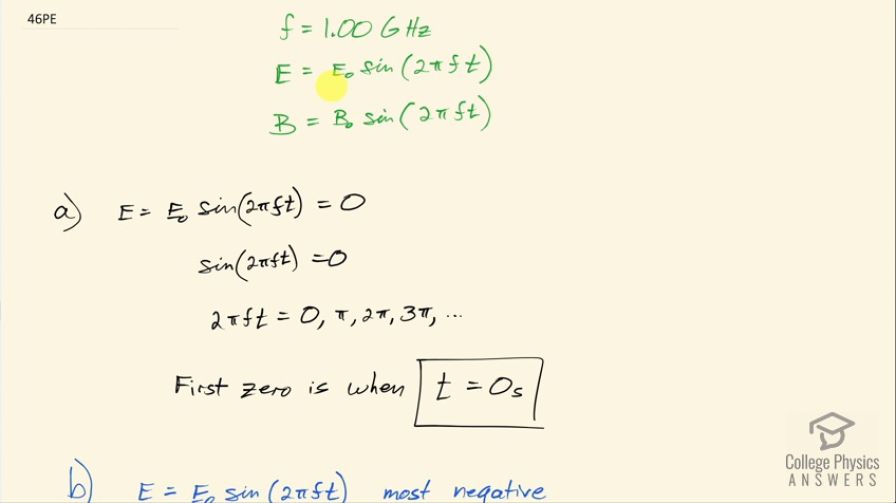 46PE
f = 1.00 GHz
E = E₀ sin(2πft)
B = B₀ sin(2πft)
a) E = E₀ sin(2πft) = 0
sin(2πft) = 0
2πft = 0, π, 2π, 3π, ...
First zero is when t = 0s
b) E = E₀ sin(2πft) most negative
College Physics
ANSWERS